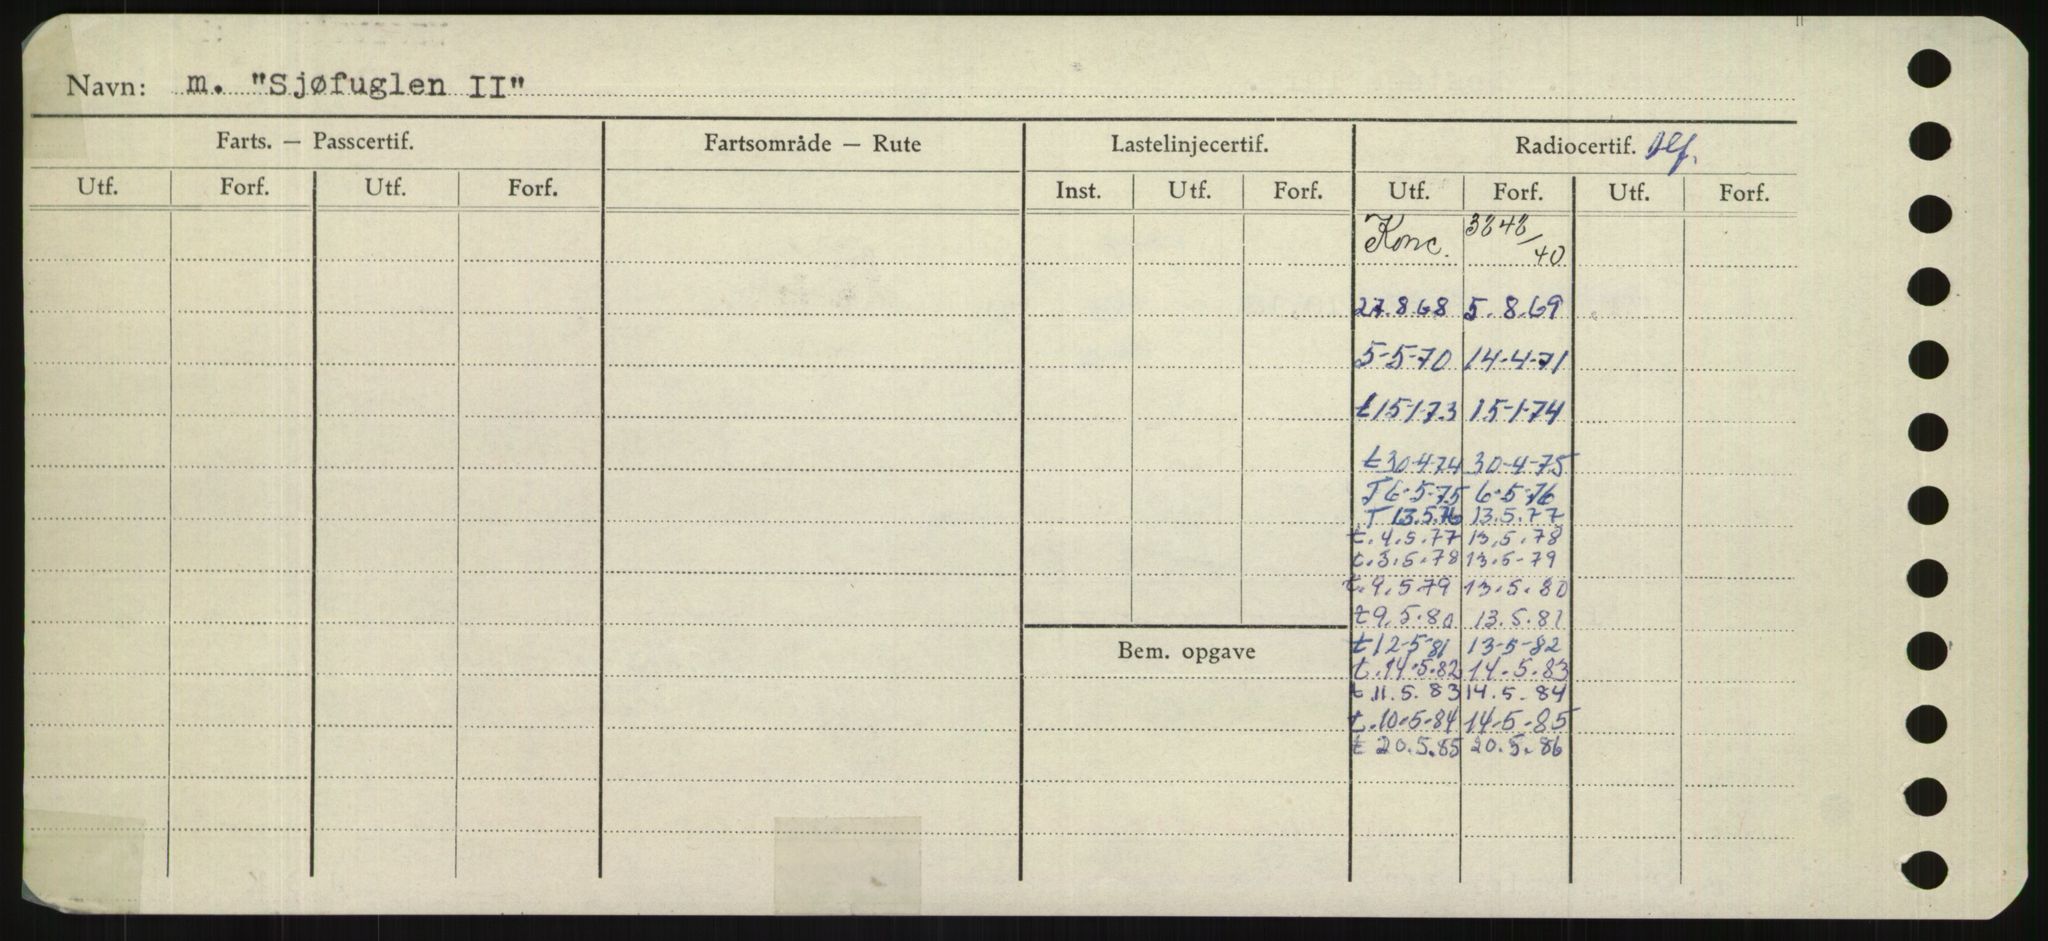 Navn: m. "Sjøfuglen II"
Farts. — Passcertif. Fartsområde — Rute Lastelinjecertif. Radiocertif. tlf.
Utf. Forf. Utf. Forf. Inst. Utf. Forf. Utf. Forf. Utf. Forf.
Konc. 3848/40
27.8.68 5.8.69
5-5-70 14-4-71
t15-1-73 15-1-74
t30-4-74 30-4-75
T 6-5-75 6-5-76
T 13.5.76 13.5.77
t.4.5.77 13.5.78
t.3.5.78 13.5-79
t.9.5.79 13.5.80
t9.5.80 13.5.81
t12-5-81 13-5-82
Bem. opgave t.14.5.82 14.5.83
t.11.5.83 14.5.84
t.10-5-84 14-5-85
t 20.5.85 20.5.86